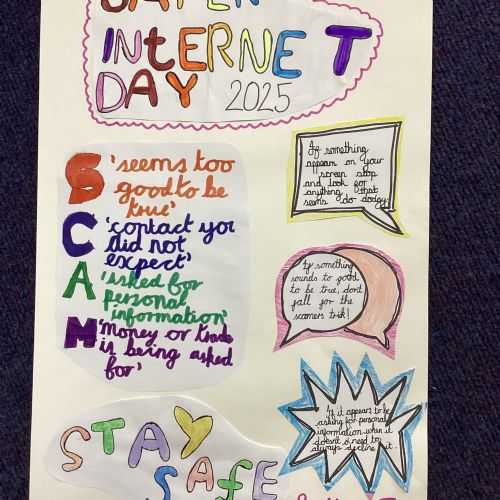 SAFER
INTERNET
DAY 2025
S 'seems too
good to be
true'
C 'contact you
did not
expect'
A 'Asked for
personal
information'
M 'Money or trade
is being asked
for'
If something
appears on your
screen stop
and look for
anything that
seems do dodgy!
If something
sounds to good
to be true, dont
fall for the
scamers trick!
If it appears to be
asking for personal
information when it
doesn't need to
always decline it.
STAY
SAFE